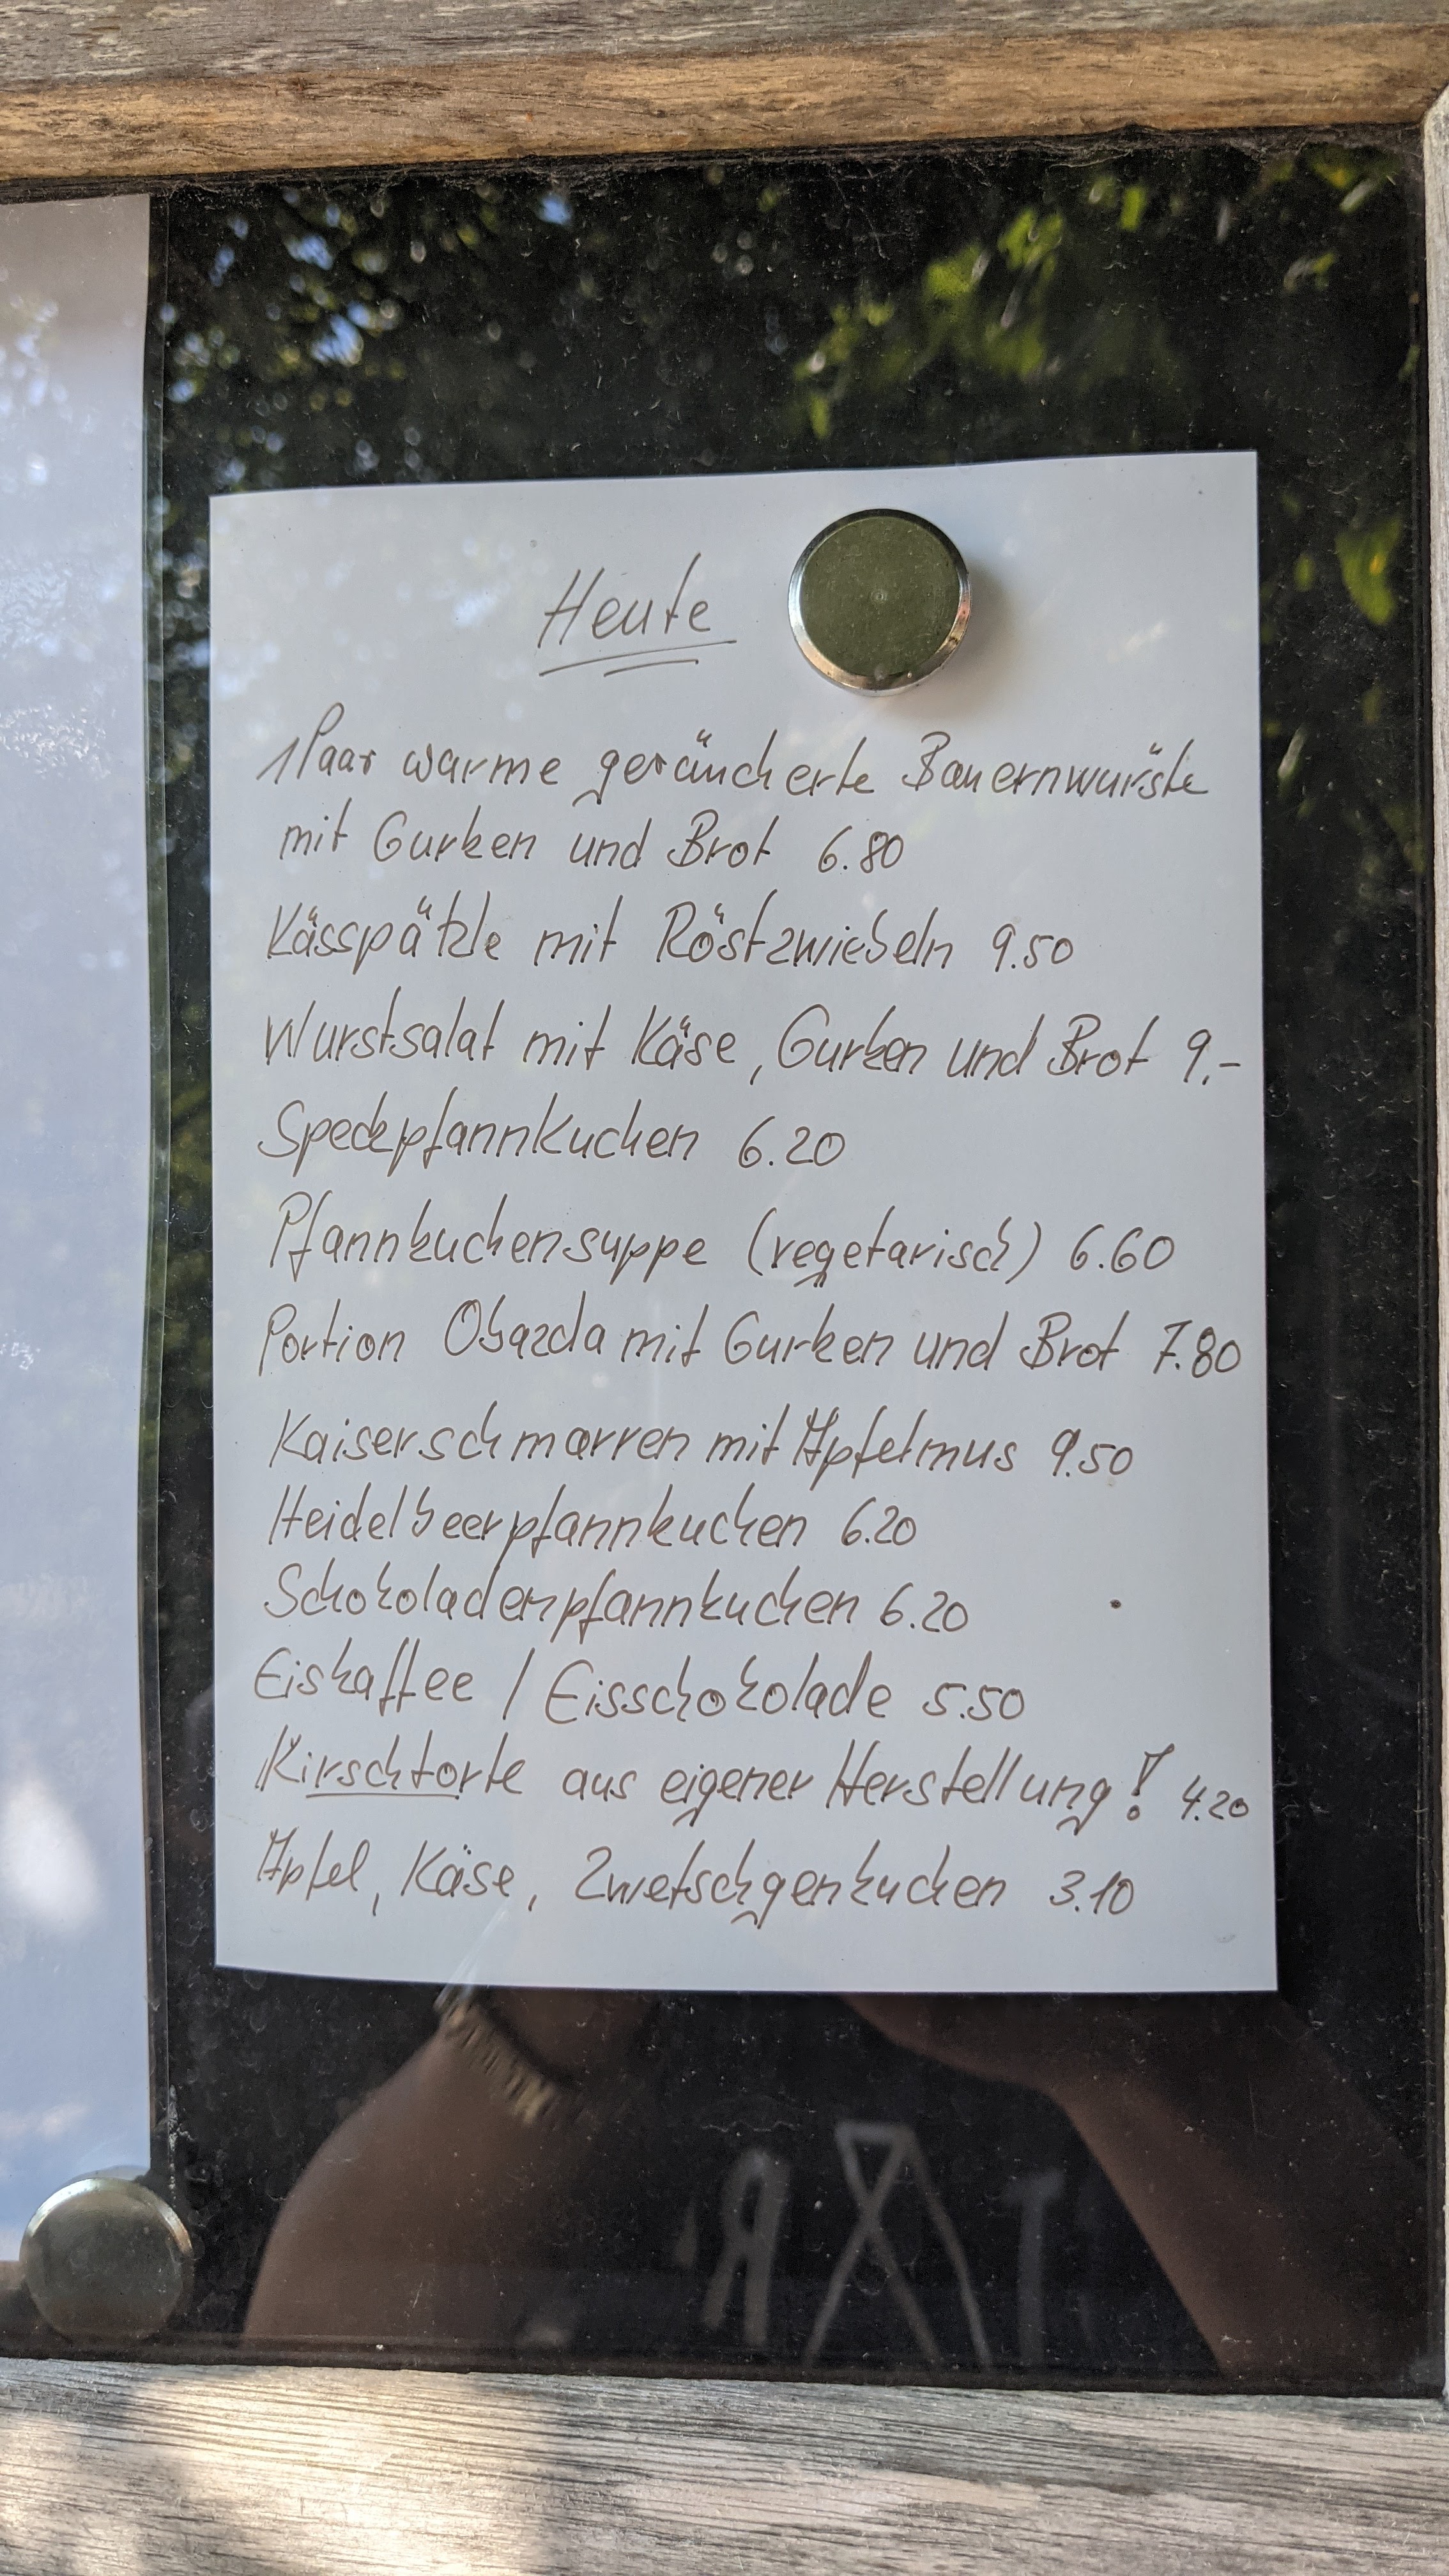 Heute
1 Paar warme geräucherte Bauernwürste
mit Gurken und Brot 6.80
Kässpätzle mit Röstzwiebeln 9.50
Wurstsalat mit Käse, Gurken und Brot 9.-
Speckpfannkuchen 6.20
Pfannkuchensuppe (vegetarisch) 6.60
Portion Obazda mit Gurken und Brot 7.80
Kaiserschmarren mit Apfelmus 9.50
Heidelbeerpfannkuchen 6.20
Schokoladenpfannkuchen 6.20
Eiskaffee / Eisschokolade 5.50
Kirschtorte aus eigener Herstellung! 4.20
Apfel, Käse, Zwetschgenkuchen 3.10